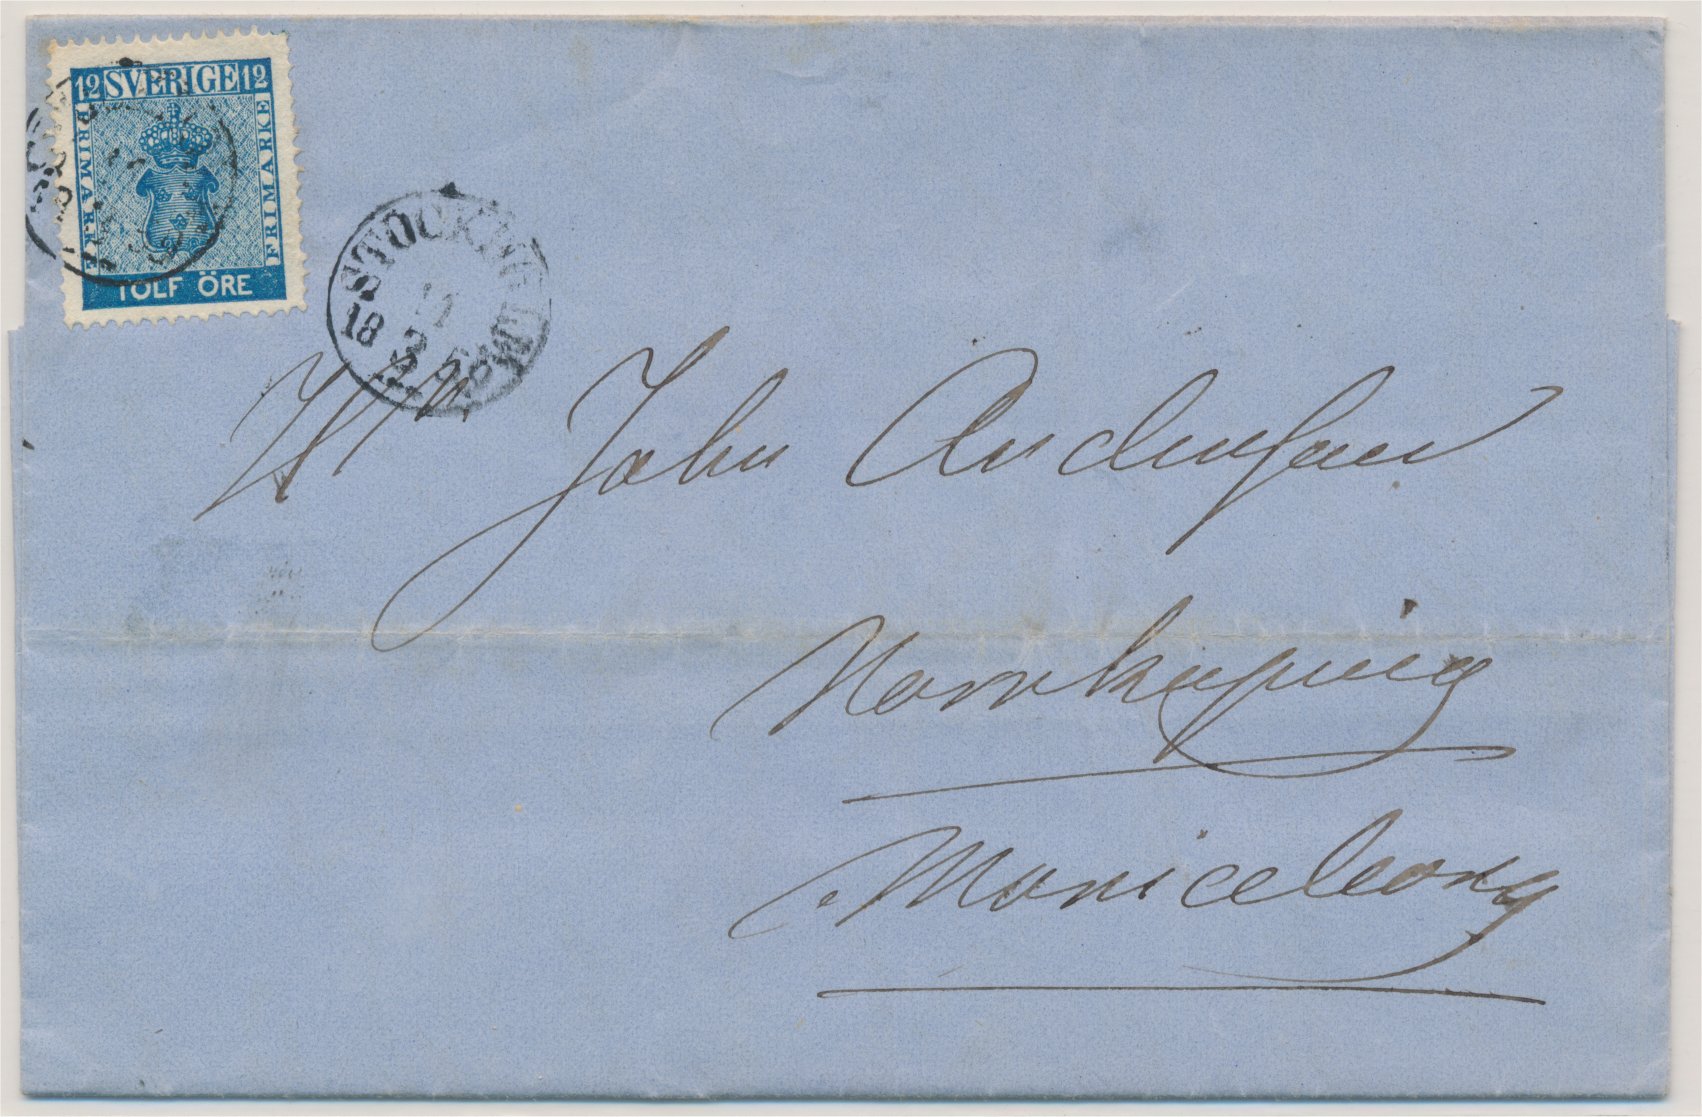 12 SVERIGE 12
FRIMÄRKE
FRIMÄRKE
TOLF ÖRE
STOCKHOLM
18
Hr John Andersson
Norrköping